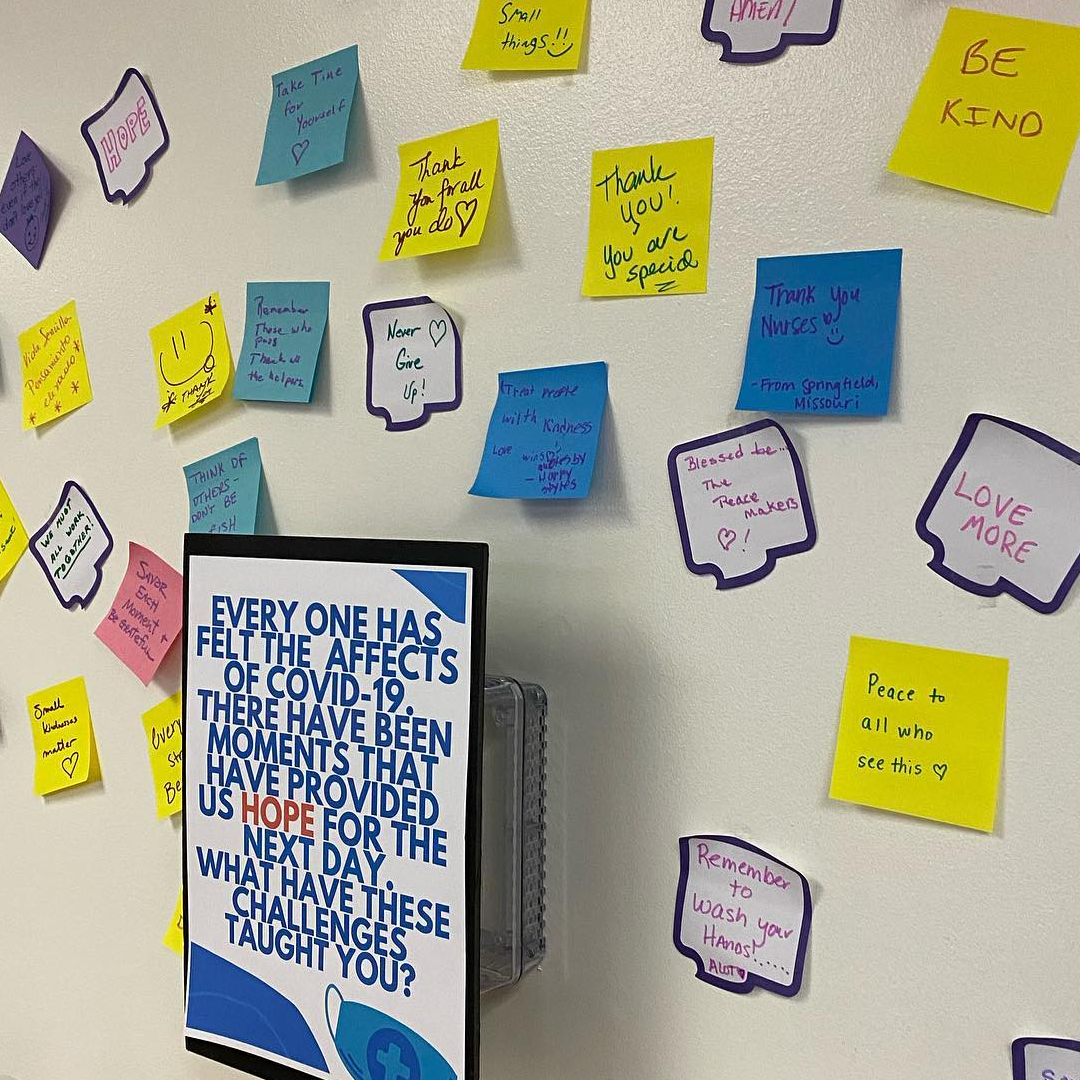 Small
things!!
AMEN!
BE
KIND
HOPE
Take Time
for
Yourself
Thank
You for all
you do
Thank
you!
you are
special
Love
others
even if they
don't
Thank you
Nurses
-From Springfield,
Missouri
Remember
Those who
pass
Thank us
the helpers
Never
Give
Up!
Vida Sencilla
Pensamiento
elevado
THANK
Treat people
with Kindness
Love wins
quotes by
- Harry
styles
THINK OF
OTHERS-
DON'T BE
Blessed be...
The
Peace
makers
!
LOVE
MORE
WE MUST
ALL WORK
TOGETHER!
SAVOR
EACH
Moment &
BE GRATEFUL
Small
kindness
matter
Every
Str
Be
Peace to
all who
see this
EVERY ONE HAS
FELT THE AFFECTS
OF COVID-19.
THERE HAVE BEEN
MOMENTS THAT
HAVE PROVIDED
US HOPE FOR THE
NEXT DAY.
WHAT HAVE THESE
CHALLENGES
TAUGHT YOU?
Remember
to
Wash your
HANDS!......
ALOT